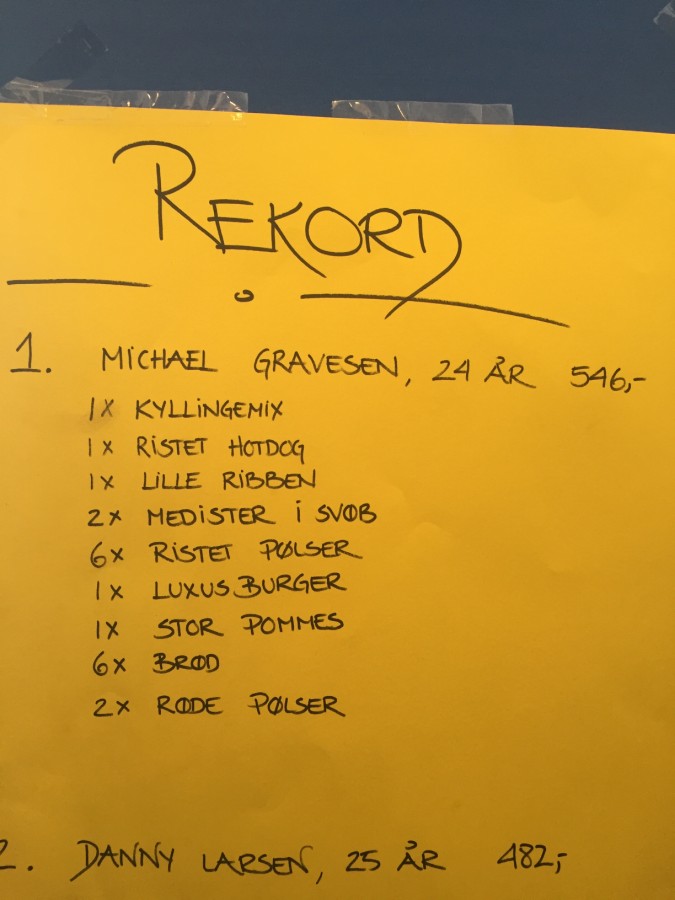 REKORD
1. MICHAEL GRAVESEN, 24 ÅR 546,-
1X KYLLINGEMIX
1X RISTET HOTDOG
1X LILLE RIBBEN
2X MEDISTER I SVØB
6X RISTET PØLSER
1X LUXUSBURGER
1X STOR POMMES
6X BRØD
2X RØDE PØLSER
2. DANNY LARSEN, 25 ÅR 482,-